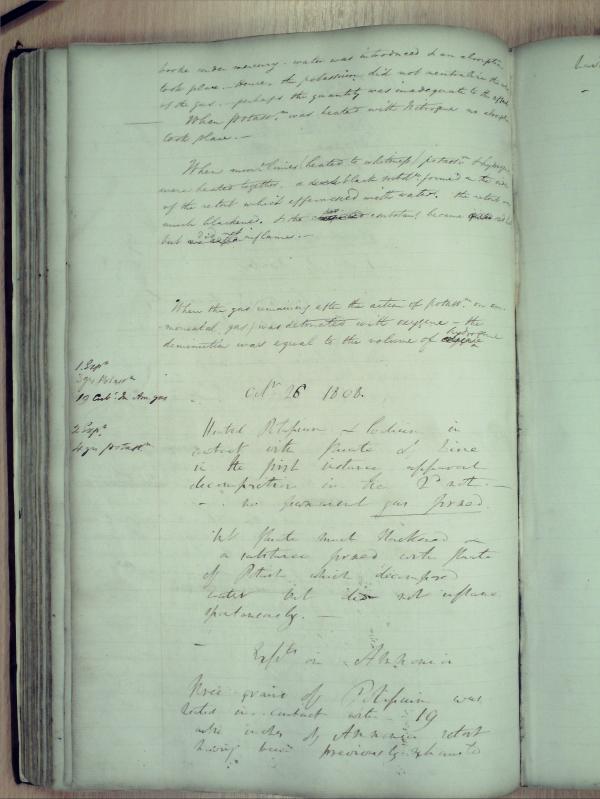 broke under mercury. water was introduced & an absorption
took place. Hence, the potassium did not neutralize the
of the gas. - perhaps the quantity was inadequate to the effect
When potassm. was heated with Nitrogen no absorption
took place. -
When heated to whiteness potassm. & hydrogen
were heated together, a black formed on the side
of the retort which effervesced with water. the retort
much blackened. & the constant became
but did not inflame. -
When the gas remaining after the action of potassm. on am-
moniacal gas was detonated with oxygene - the
diminution was equal to the volume of hydrogene
1. Expt
3 grs Potassm
19 Cub. In Am. gas
Octr. 26 1808.
2. Expt.
4 grs Potassm
Heated Potassium & in
contact with fluate of Lime
in the first instance apparent
decomposition in the 2d not. -
- no permanent gas formed.
The fluate much blackened -
a substance formed with fluate
of Potash which decomposed
water but did not inflame
spontaneously. -
Expts on Ammonia
Three grains of Potassium was
heated in contact with 19
cubic inches of Ammonia retort
having been previously exhausted